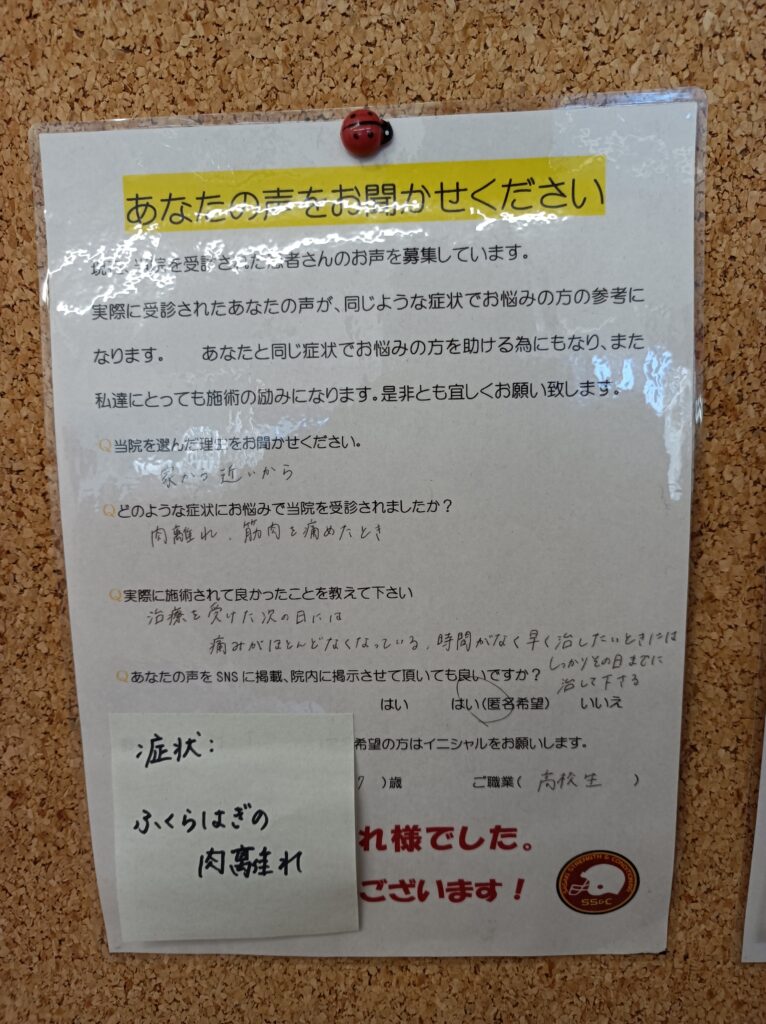 あなたの声をお聞かせください
現在当院を受診された患者さんのお声を募集しています。
実際に受診されたあなたの声が、同じような症状でお悩みの方の参考に
なります。 あなたと同じ症状でお悩みの方を助ける為にもなり、また
私達にとっても施術の励みになります。是非とも宜しくお願い致します。
Q当院を選んだ理由をお聞かせください。
家から近いから
Qどのような症状にお悩みで当院を受診されましたか?
肉離れ、筋肉を痛めたとき
Q実際に施術されて良かったことを教えて下さい
治療を受けた次の日には
痛みがほとんどなくなっている、時間がなく早く治したいときには
しっかりその日までに
治して下さる
Qあなたの声をSNSに掲載、院内に掲示させて頂いても良いですか?
はい はい(匿名希望) いいえ
希望の方はイニシャルをお願いします。
7 )歳 ご職業( 高校生 )
症状:
ふくらはぎの
肉離れ
れ様でした。
ございます!
STRENGTH & CONDITIONING
SS&C